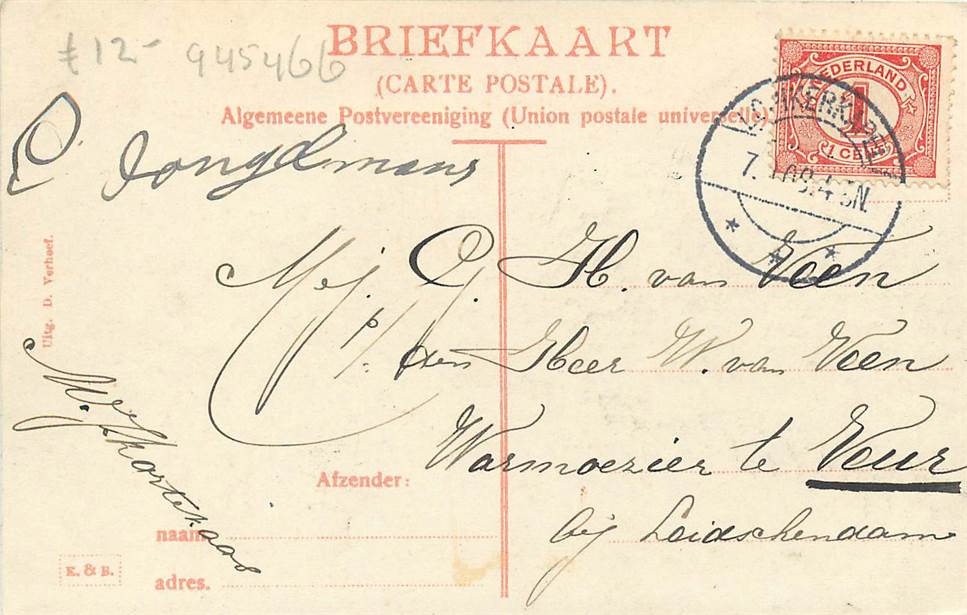 £12- 945466
BRIEFKAART
(CARTE POSTALE).
Algemeene Postvereeniging (Union postale universelle)
NEDERLAND
1
1 CENT
C. Jongelmans
Mej. C. J. H. van Veen
p/. den Heer W. van Veen
Warmoezier te Veur
bij Leidschendam
Uitg. D. Verhoef.
Afzender:
naam
adres.
K. & B.